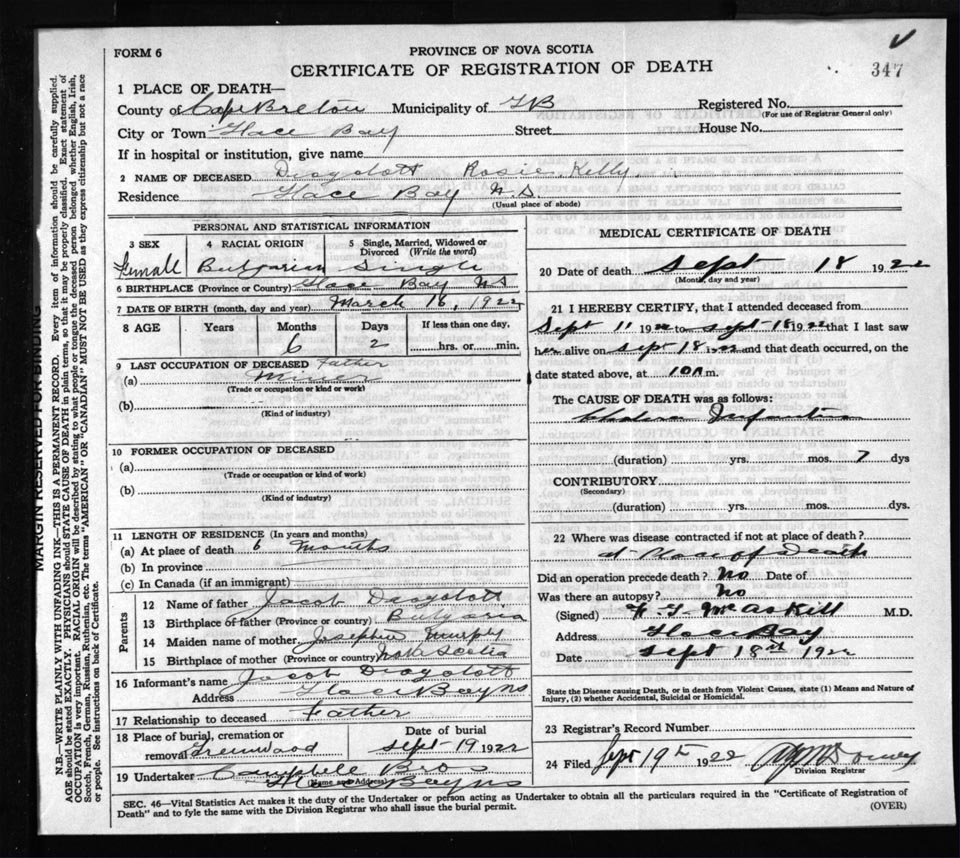 FORM 6
PROVINCE OF NOVA SCOTIA
CERTIFICATE OF REGISTRATION OF DEATH
347
1 PLACE OF DEATH—
County of Cape Breton Municipality of G B Registered No.
(For use of Registrar General only)
City or Town Glace Bay Street House No.
If in hospital or institution, give name
2 NAME OF DECEASED Rosie Kelly
Residence Glace Bay N.S.
(Usual place of abode)
PERSONAL AND STATISTICAL INFORMATION
3 SEX 4 RACIAL ORIGIN 5 Single, Married, Widowed or Divorced (Write the word)
Female Bulgarian Single
6 BIRTHPLACE (Province or Country) Glace Bay NS
7 DATE OF BIRTH (month, day and year) March 16, 1922
8 AGE Years Months Days If less than one day,
6 2 hrs. or min.
9 LAST OCCUPATION OF DECEASED Father
(a)
(Trade or occupation or kind of work)
(b)
(Kind of industry)
10 FORMER OCCUPATION OF DECEASED
(a)
(Trade or occupation or kind of work)
(b)
(Kind of industry)
11 LENGTH OF RESIDENCE (In years and months)
(a) At place of death 6 Months
(b) In province
(c) In Canada (if an immigrant)
Parents
12 Name of father Jacob
13 Birthplace of father (Province or country) Bulgaria
14 Maiden name of mother Josephine Murphy
15 Birthplace of mother (Province or country) Nova Scotia
16 Informant's name Jacob
Address Glace Bay ns
17 Relationship to deceased Father
18 Place of burial, cremation or removal Greenwood
Date of burial
Sept 19 1922
19 Undertaker Bros
(Name and Address)
Glace Bay ns
MEDICAL CERTIFICATE OF DEATH
20 Date of death Sept 18 1922
(Month, day and year)
21 I HEREBY CERTIFY, that I attended deceased from
Sept 11 1922 to Sept 18 1922 that I last saw
her alive on Sept 18 1922 and that death occurred, on the
date stated above, at 10 A m.
The CAUSE OF DEATH was as follows:
Cholera Infantum
(duration) yrs. mos. 7 dys
CONTRIBUTORY
(Secondary)
(duration) yrs. mos. dys.
22 Where was disease contracted if not at place of death?
at Place of Death
Did an operation precede death? No Date of
Was there an autopsy? No
(Signed) McAskill M.D.
Address Glace Bay
Date Sept 18th 1922
State the Disease causing Death, or in death from Violent Causes, state (1) Means and Nature of
Injury, (2) whether Accidental, Suicidal or Homicidal.
23 Registrar's Record Number
24 Filed Sept 19th 1922
Division Registrar
SEC. 46—Vital Statistics Act makes it the duty of the Undertaker or person acting as Undertaker to obtain all the particulars required in the "Certificate of Registration of
Death" and to fyle the same with the Division Registrar who shall issue the burial permit. (OVER)
MARGIN RESERVED FOR BINDING
N.B.—WRITE PLAINLY WITH UNFADING INK—THIS IS A PERMANENT RECORD. Every item of information should be carefully supplied.
AGE should be stated EXACTLY. PHYSICIANS should STATE CAUSE OF DEATH in plain terms, so that it may be properly classified. Exact statement of
OCCUPATION is very important. RACIAL ORIGIN will be described by stating to what people or tongue the deceased person belonged, whether English, Irish,
Scotch, French, German, Russian, Ruthenian, etc. The terms "AMERICAN" OR "CANADIAN" MUST NOT BE USED as they express citizenship but not a race
or people. See instructions on back of Certificate.